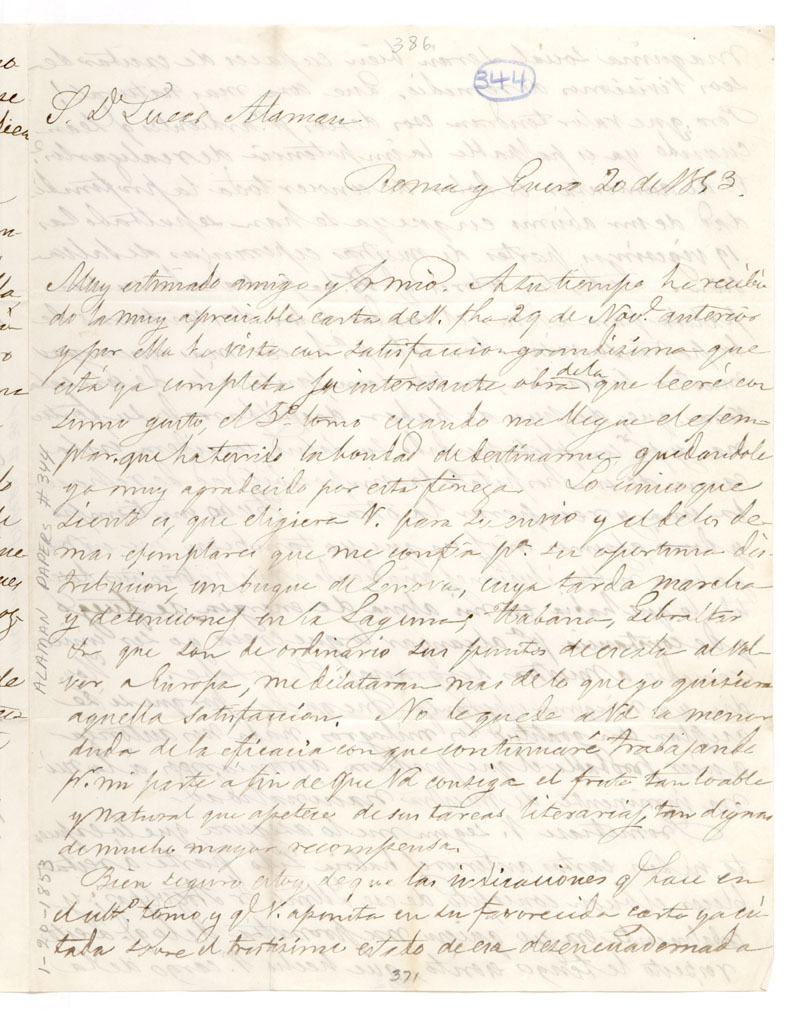 386
344
S. Dn Lucas Alaman
Roma y Enero 20 de 1853.
Muy estimado amigo y Sr mio. A su tiempo he recibi-
do la muy apreciable carta de V. fha 29 de Nove. anterior
y por ella he visto con satisfaccion grandisima que
está ya completa su interesante obra de la que leeré con
sumo gusto, el 5o. tomo cuando me llegue el ejem-
plar que ha tenido la bondad de destinarme quedandole
yo muy agradecido por esta fineza. Lo unico que
siento es, que eligiera V. para su envio y el de los de-
mas ejemplares que me confia pa. su oportuna dis-
tribucion, un buque de Genova, cuya tarda marcha
y detenciones en la Laguna, Habana, Gibraltar
& que son de ordinario sus puntos de escala al vol-
ver a Europa, me dilataran mas de lo que yo quisiera
aquella satisfaccion. No le quede a Vd la menor
duda de la eficacia con que continuaré trabajando
pr. mi parte á fin de que Vd consiga el fruto tan loable
y natural que apetece de sus tareas literarias, tan dignas
de mucho mayor recompensa.
Bien seguro estoy de que las indicaciones qe hace en
el ulto. tomo, y qe V. apunta en su favorecida carta ya ci-
tada sobre el tristisimo estado de esa desencuadernada
371
ALAMAN PAPERS #344
1-20-1853